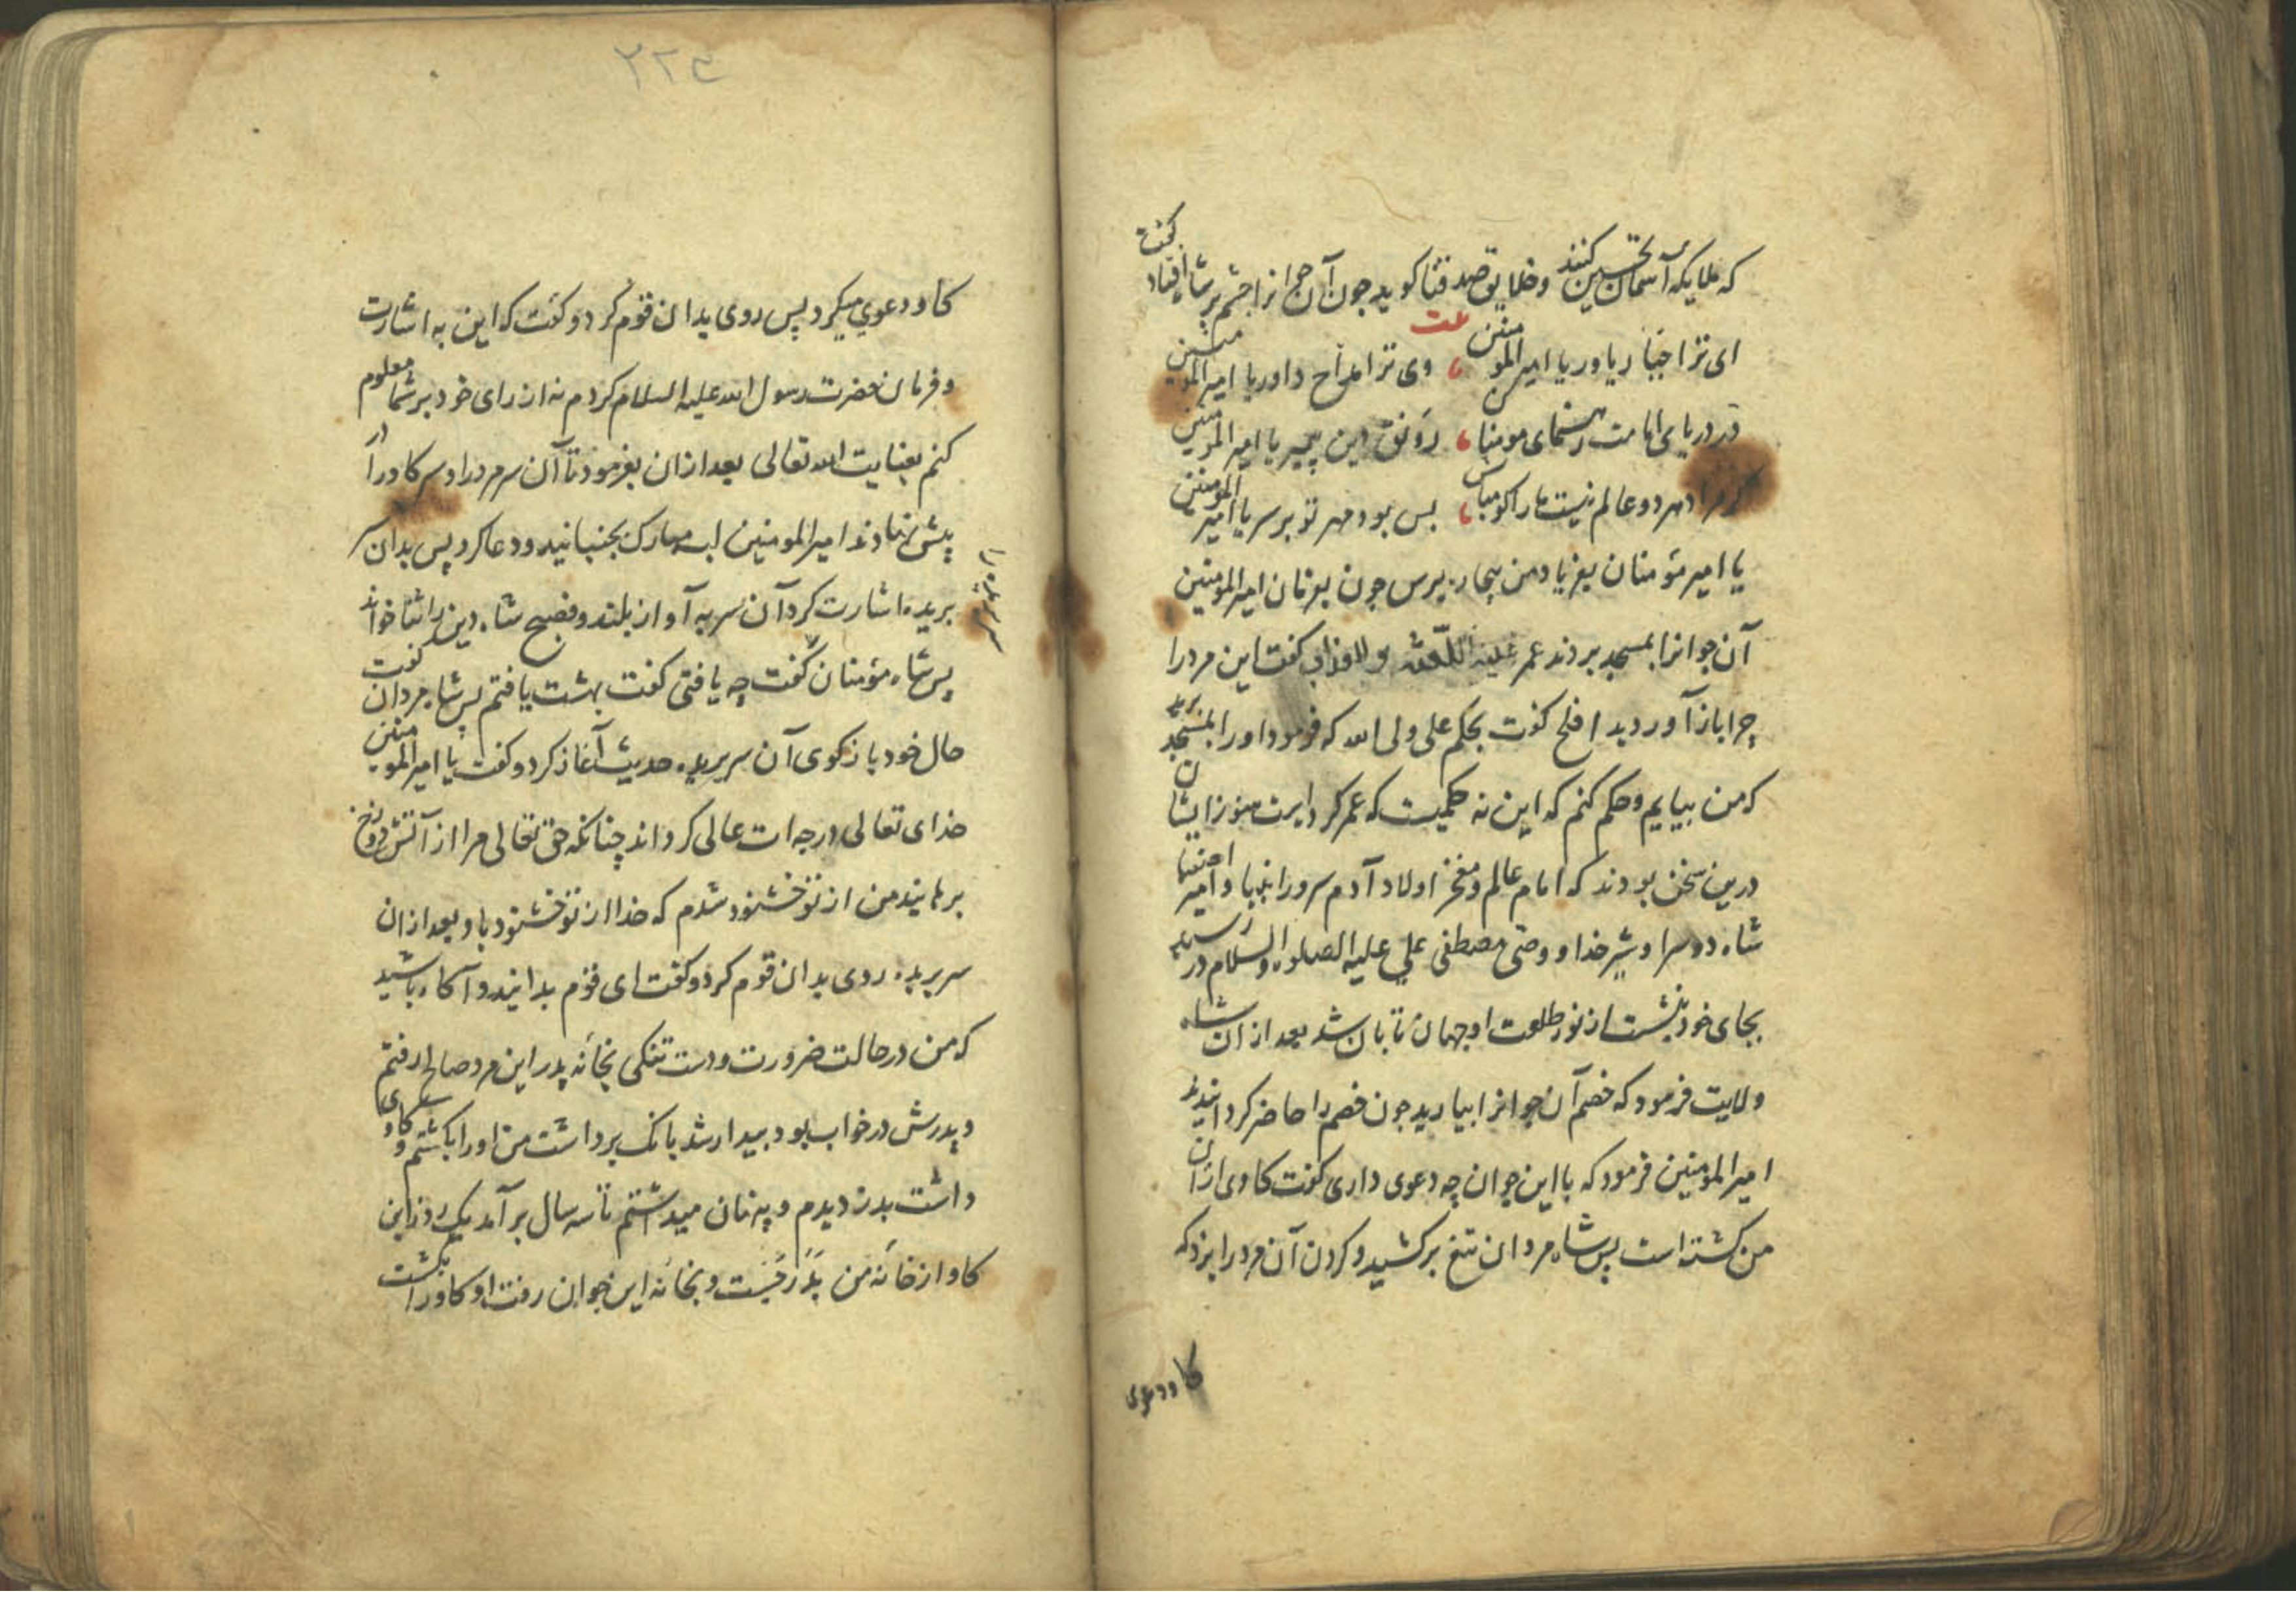 که ملایکهٔ آسمان تحسین کنند و خلایق صد ثنا کوید چون آن جوانرا چشم بر شاه افتاد کفت
ای ترا جبار یاور یا امیر المومنین وی ترا مداح داور یا امیر المومنین
در دریای امامت رهنمای مومنان رونق دین پیمبر یا امیر المومنین
کر مراد هر دو عالم نیست ما را کو مباش بس بود مهر تو بر سر یا امیر المومنین
یا امیر مؤمنان بفریاد من بیچاره برس چون بفرمان امیر المومنین
آن جوانرا بمسجد بردند عمر علیه اللعنه و العذاب کفت این مرد را
چرا باز آوردید افلح کفت بحکم علی ولی الله که فرمود او را بمسجد برید
که من بیایم و حکم کنم که این نه حکمیست که عمر کرد ایرت هنوز ایشان
درین سخن بودند که امام عالم و مفخر اولاد آدم سرور انبیا و امیر اصفیا
شاه دو سرا و شیر خدا و وصی مصطفی علی علیه الصلوه والسلام در رسید
بجای خود بنشست از نور طلعت او جهان تابان شد بعد از ان شاه
ولایت فرمود که خصم آن جوانرا بیارید چون خصم را حاضر کردانیدند
امیر المومنین فرمود که با این جوان چه دعوی داری کفت کاوی از ان
من کشته است پس شاه مردان تیغ برکشید و کردن آن مرد را بزد که
کاو دعوی
۲۲۴
کاو دعوی میکرد پس روی بدان قوم کرد و کفت که این به اشارت
و فرمان حضرت رسول الله علیه السلام کردم نه از رای خود بر شما معلوم
کنم بعنایت الله تعالی بعد از ان بفرمود تا آن سر مرد را و سر کاو را
پیش نهادند امیر المومنین لب مبارک بجنبانید و دعا کرد پس بدان سر
بریده اشارت کرد آن سر به آواز بلند و فصیح شاه دین را ثنا خواند
پس شاه مؤمنان کفت چه یافتی کفت بهشت یافتم پس شاه مردان کفت
حال خود باز کوی آن سر بریده حدیث آغاز کرد و کفت یا امیر المومنین
خدای تعالی درجه ات عالی کرداند چنانکه حق تعالی مرا از آتش دوزخ
برهانید من از تو خشنود شدم که خدا از تو خشنود باد بعد از ان
سر بریده روی بدان قوم کرد و کفت ای قوم بدانید و آکاه باشید
که من در حالت ضرورت و دست تنکی بخانه پدر این مرد صالح رفتم
و پدرش در خواب بود بیدار شد بانک برداشت من او را بکشتم و کاوی
داشت بدزدیدم و پنهان میداشتم تا سه سال بر آمد یک روز این
کاو از خانه من بدر جست و بخانه این جوان رفت او کاو را بکشت